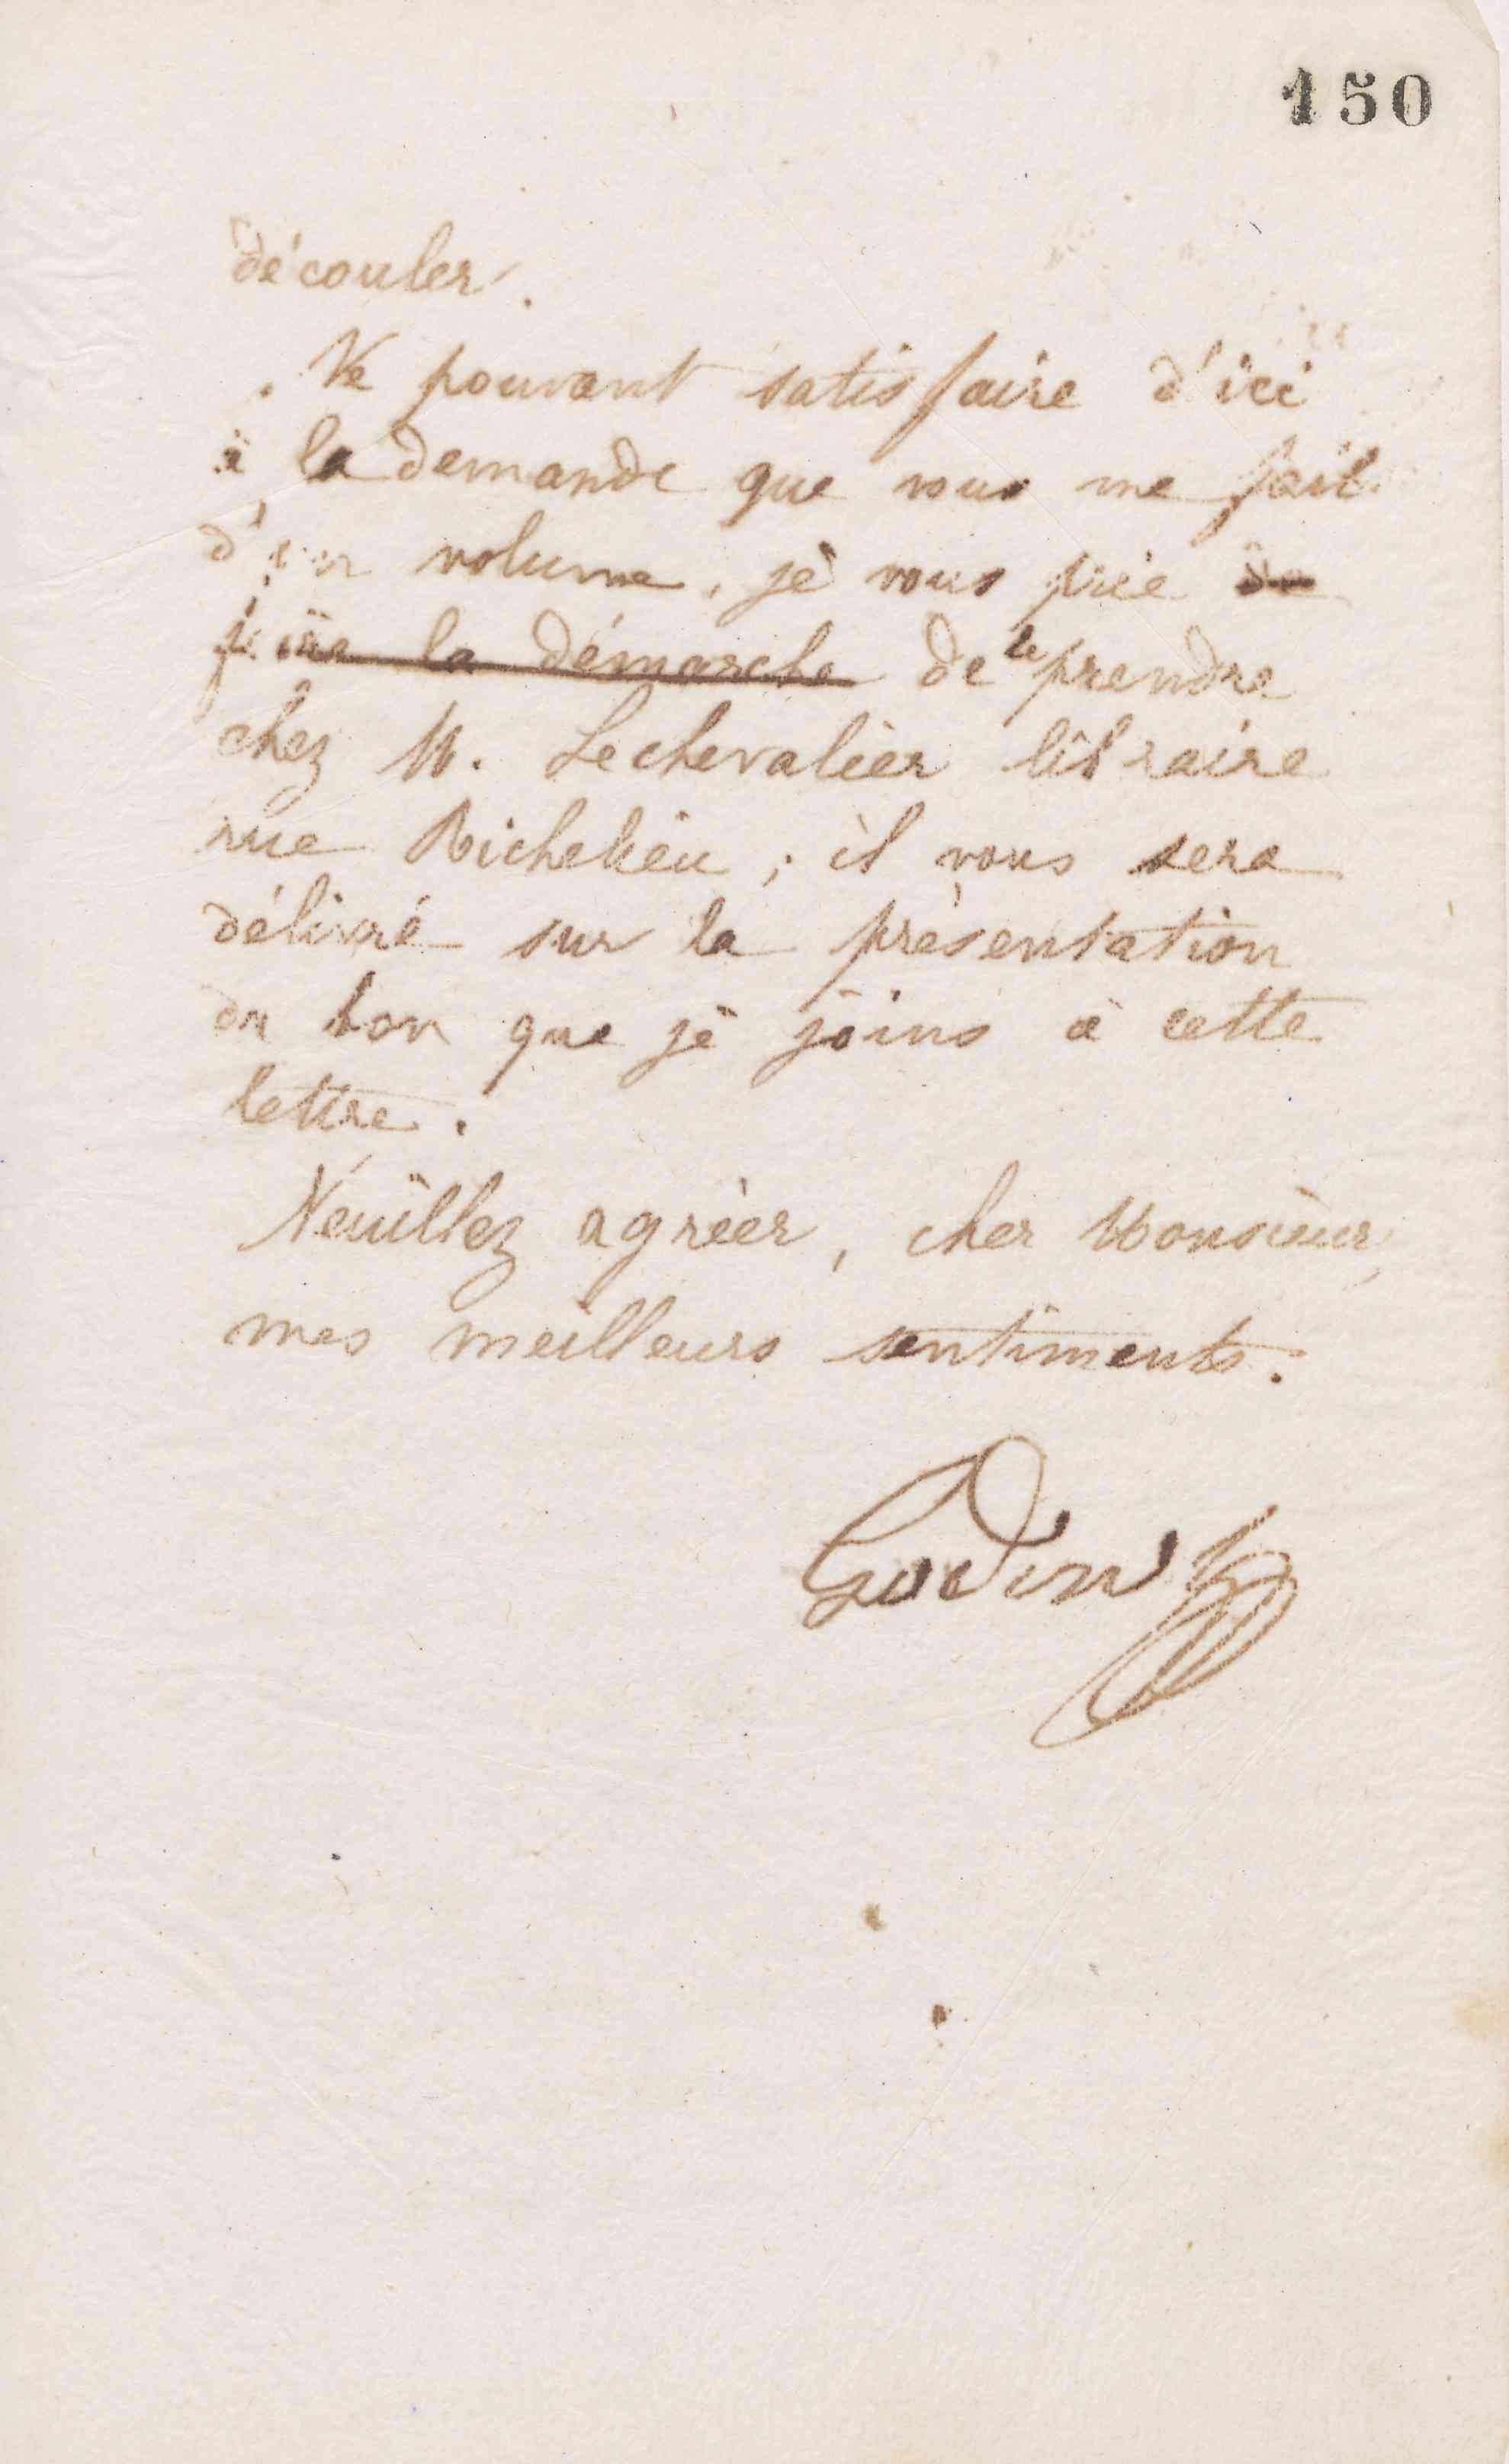 150
découler.
Ne pouvant satisfaire d'ici
à la demande que vous me fait
d'un volume, je vous prie de
faire la démarche de le prendre
chez M. Lechevalier libraire
rue Richelieu ; il vous sera
délivré sur la présentation
du bon que je joins à cette
lettre.
Veuillez agréer, cher Monsieur,
mes meilleurs sentiments.
Godin